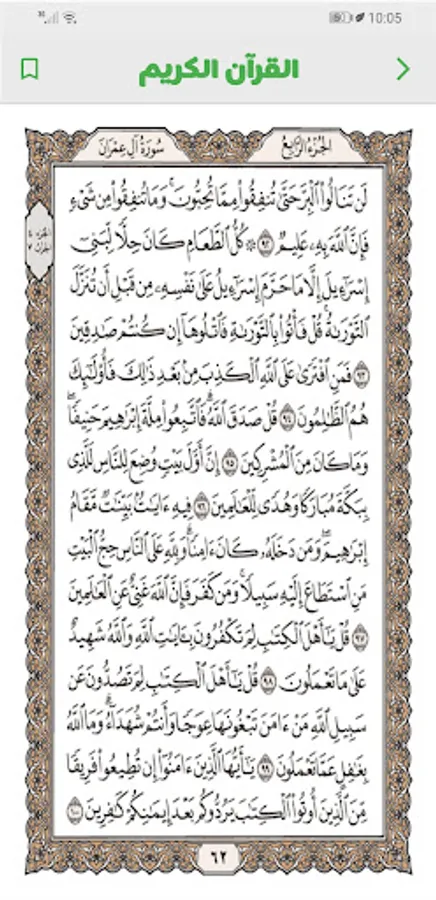 10:05
القرآن الكريم
الجُزْءُ الرَّابِعُ
سُورَةُ آلِ عِمْرَانَ
لَن تَنَالُوا۟ ٱلْبِرَّ حَتَّىٰ تُنفِقُوا۟ مِمَّا تُحِبُّونَ ۚ وَمَا تُنفِقُوا۟ مِن شَىْءٍ
فَإِنَّ ٱللَّهَ بِهِۦ عَلِيمٌ ٩٢ ۞ كُلُّ ٱلطَّعَامِ كَانَ حِلًّا لِّبَنِىٓ
إِسْرَٰٓءِيلَ إِلَّا مَا حَرَّمَ إِسْرَٰٓءِيلُ عَلَىٰ نَفْسِهِۦ مِن قَبْلِ أَن تُنَزَّلَ
ٱلتَّوْرَىٰةُ ۗ قُلْ فَأْتُوا۟ بِٱلتَّوْرَىٰةِ فَٱتْلُوهَآ إِن كُنتُمْ صَٰدِقِينَ
٩٣ فَمَنِ ٱفْتَرَىٰ عَلَى ٱللَّهِ ٱلْكَذِبَ مِنۢ بَعْدِ ذَٰلِكَ فَأُو۟لَٰٓئِكَ
هُمُ ٱلظَّٰلِمُونَ ٩٤ قُلْ صَدَقَ ٱللَّهُ ۗ فَٱتَّبِعُوا۟ مِلَّةَ إِبْرَٰهِيمَ حَنِيفًا ۖ
وَمَا كَانَ مِنَ ٱلْمُشْرِكِينَ ٩٥ إِنَّ أَوَّلَ بَيْتٍ وُضِعَ لِلنَّاسِ لَلَّذِى
بِبَكَّةَ مُبَارَكًا وَهُدًى لِّلْعَٰلَمِينَ ٩٦ فِيهِ ءَايَٰتٌۢ بَيِّنَٰتٌ مَّقَامُ
إِبْرَٰهِيمَ ۖ وَمَن دَخَلَهُۥ كَانَ ءَامِنًا ۗ وَلِلَّهِ عَلَى ٱلنَّاسِ حِجُّ ٱلْبَيْتِ
مَنِ ٱسْتَطَاعَ إِلَيْهِ سَبِيلًا ۚ وَمَن كَفَرَ فَإِنَّ ٱللَّهَ غَنِىٌّ عَنِ ٱلْعَٰلَمِينَ
٩٧ قُلْ يَٰٓأَهْلَ ٱلْكِتَٰبِ لِمَ تَكْفُرُونَ بِـَٔايَٰتِ ٱللَّهِ وَٱللَّهُ شَهِيدٌ
عَلَىٰ مَا تَعْمَلُونَ ٩٨ قُلْ يَٰٓأَهْلَ ٱلْكِتَٰبِ لِمَ تَصُدُّونَ عَن
سَبِيلِ ٱللَّهِ مَنْ ءَامَنَ تَبْغُونَهَا عِوَجًا وَأَنتُمْ شُهَدَآءُ ۗ وَمَا ٱللَّهُ
بِغَٰفِلٍ عَمَّا تَعْمَلُونَ ٩٩ يَٰٓأَيُّهَا ٱلَّذِينَ ءَامَنُوٓا۟ إِن تُطِيعُوا۟ فَرِيقًا
مِّنَ ٱلَّذِينَ أُوتُوا۟ ٱلْكِتَٰبَ يَرُدُّوكُم بَعْدَ إِيمَٰنِكُمْ كَٰفِرِينَ ١٠٠
٦٢